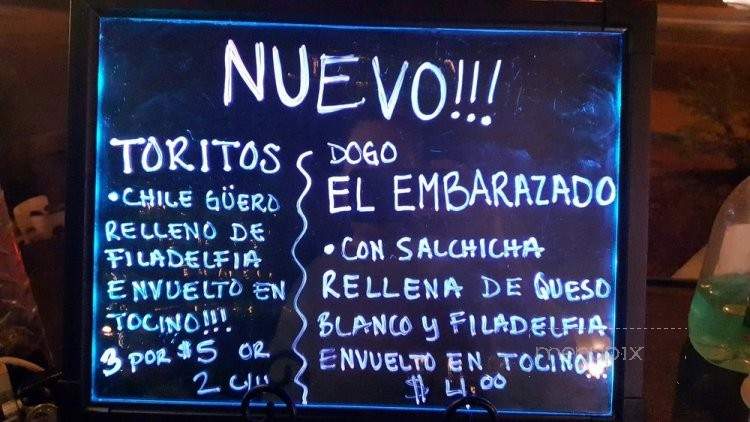 NUEVO!!!
TORITOS
•CHILE GÜERO
RELLENO DE
FILADELFIA
ENVUELTO EN
TOCINO!!!
3 POR $5 OR
2 C/U
DOGO
EL EMBARAZADO
•CON SALCHICHA
RELLENA DE QUESO
BLANCO y FILADELFIA
ENVUELTO EN TOCINO!!
$4.00